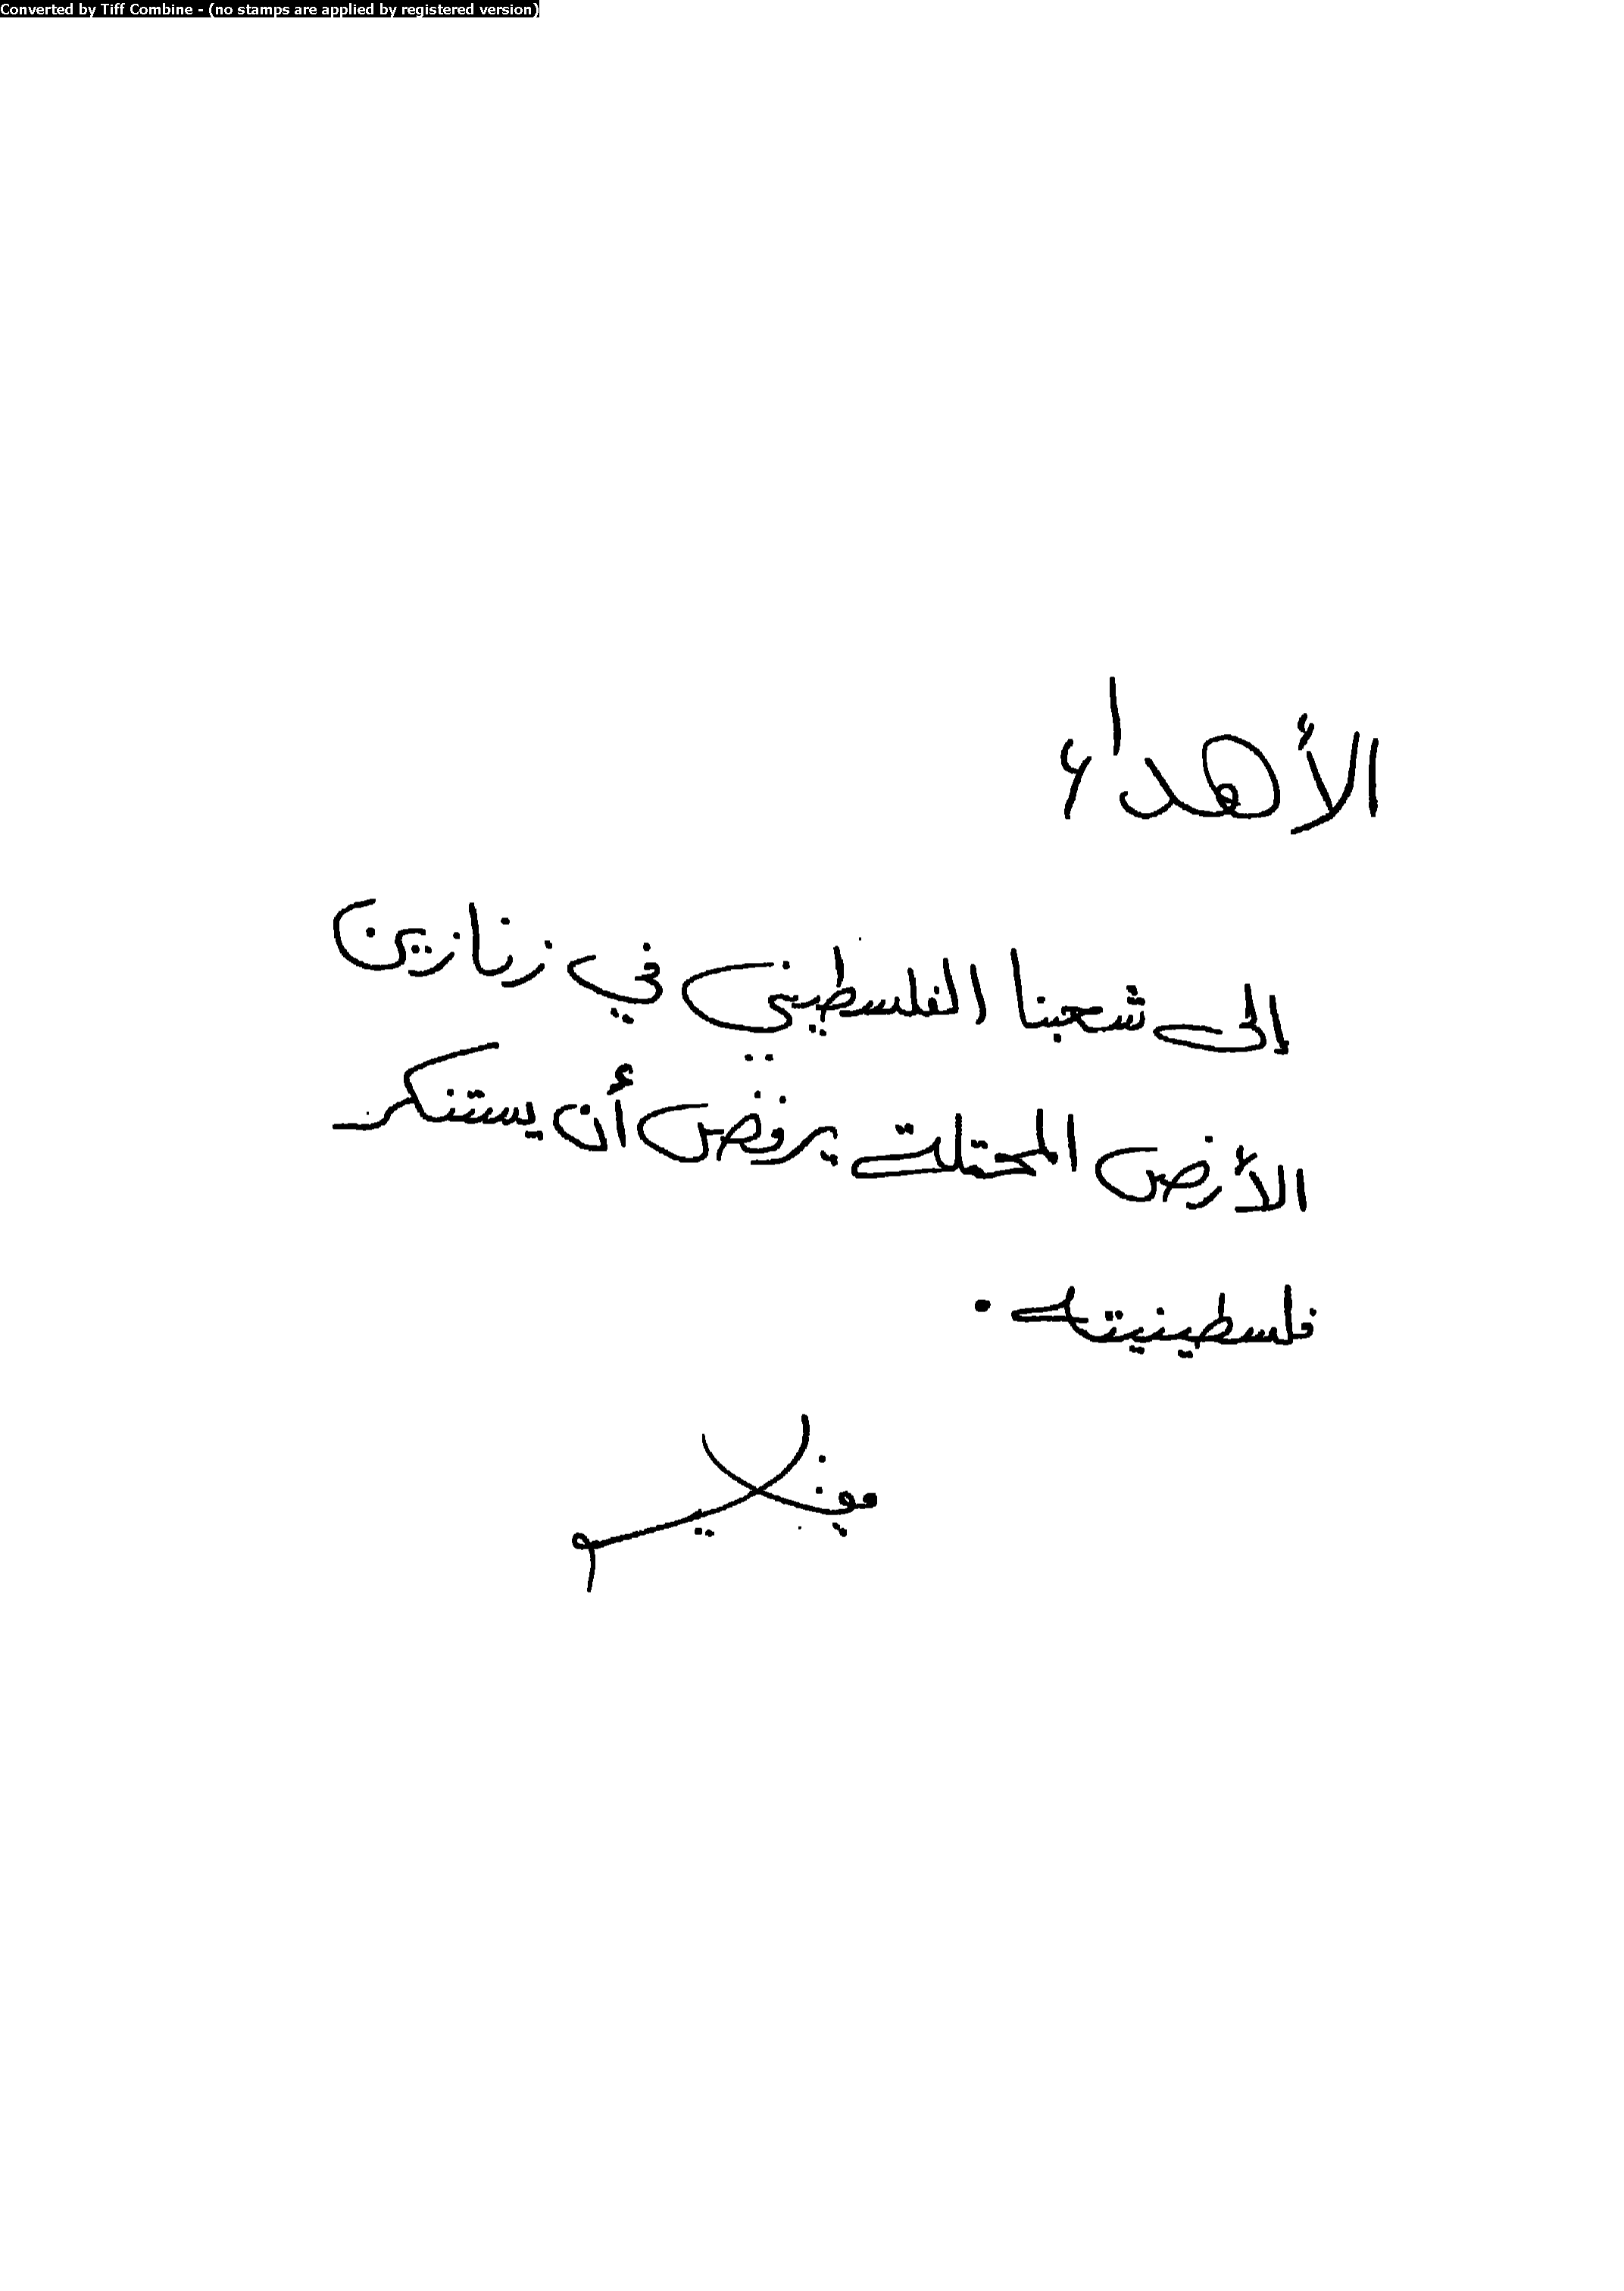 Converted by Tiff Combine - (no stamps are applied by registered version)
الأهداء
إلى شعبنا الفلسطيني في زنازين
الأرض المحتلة يرفض أن يستنكر
فلسطينيته .